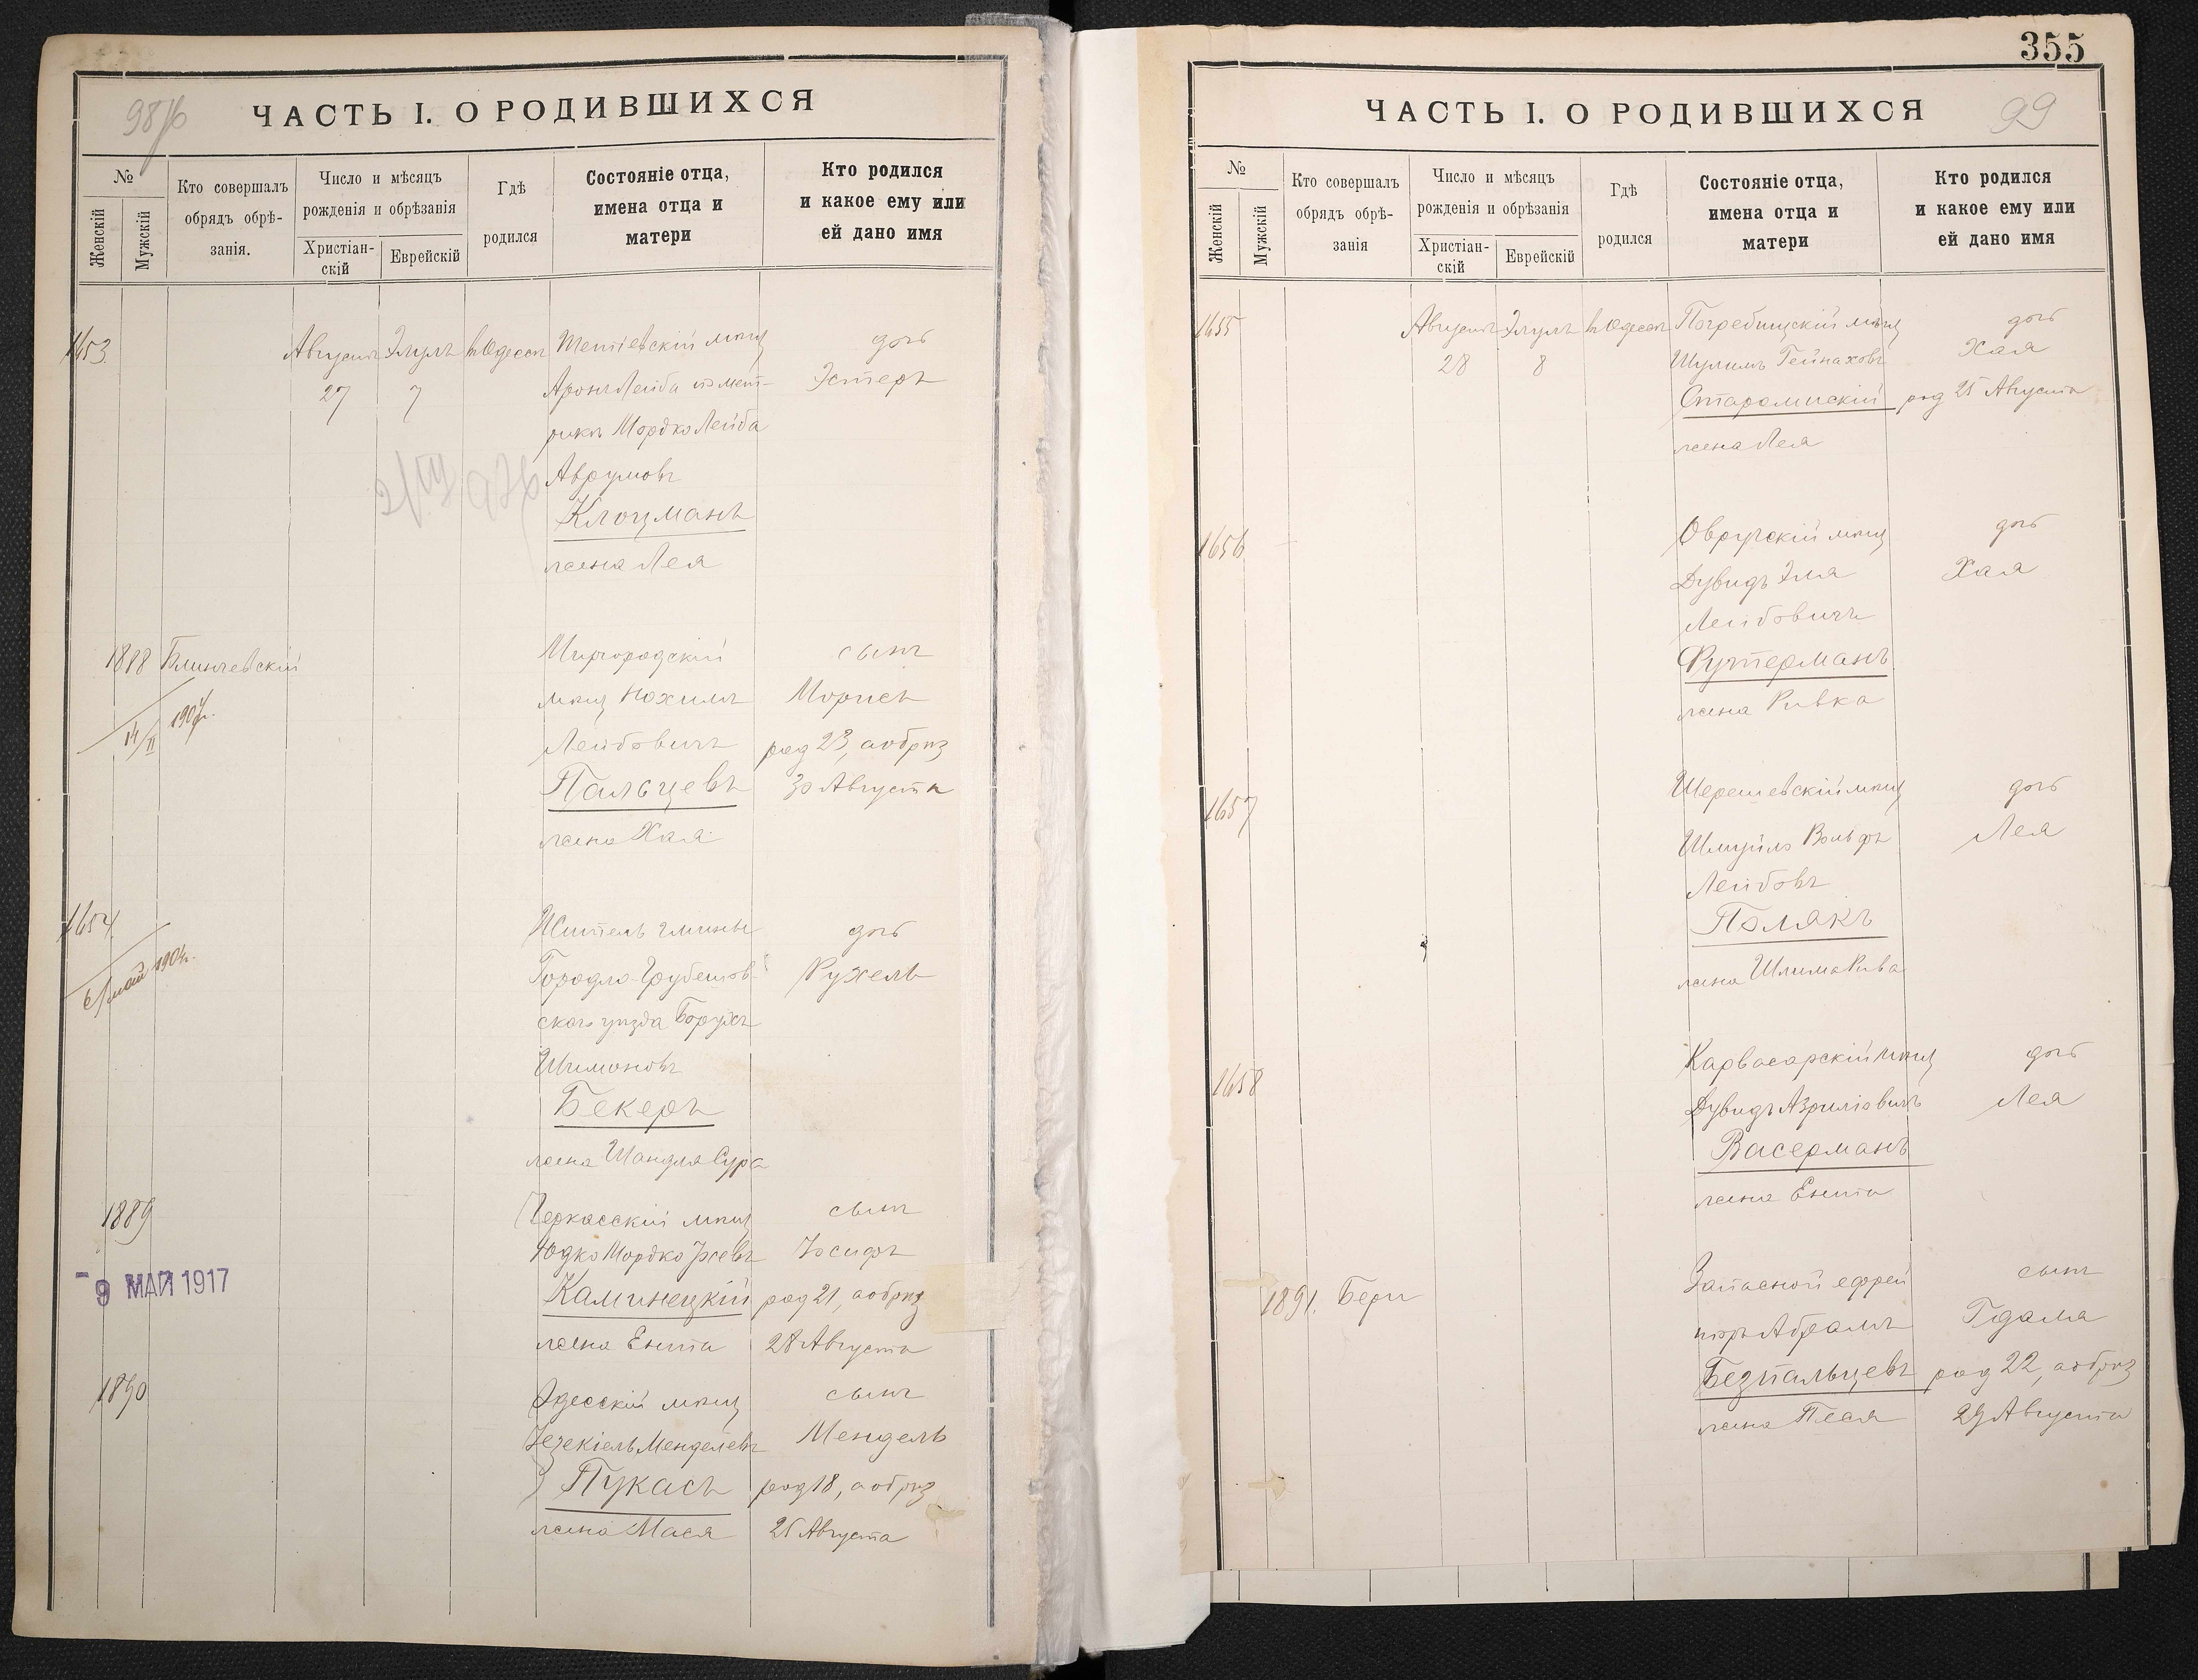 98/б
ЧАСТЬ I. О РОДИВШИХСЯ
№
Женскій
Мужскій
Кто совершалъ
обрядъ обрѣ-
занія.
Число и мѣсяцъ
рожденія и обрѣзанія
Христіан-
скій
Еврейскій
Гдѣ
родился
Состояніе отца,
имена отца и
матери
Кто родился
и какое ему или
ей дано имя
1653
Августъ
27
Элулъ
7
въ Одессѣ
Тетіевскій мѣщ
Аронъ Лейба по мет-
рикѣ Мордко Лейба
Аврумовъ
Клоцманъ
жена Лея
дочь
Эстеръ
1888
14/II 1907г.
Блинчевскій
Миргородскій
мѣщ Нохимъ
Лейбовичъ
Пальцевъ
жена Хая
сынъ
Морисъ
род 23, а обрѣз
30 Августа
1654
6/май 1904г.
Житель гмины
Городло Грубешов-
скаго уѣзда Борухъ
Шимоновъ
Бекеръ
жена Шандля Сура
дочь
Рухель
1889
- 9 МАЙ 1917
Черкасскій мѣщ
Юдко Мордко
Каминецкій
жена Ента
сынъ
Іосифъ
род 21, а обрѣз
28 Августа
1890
Одесскій мѣщ
Іезекіель Менделевъ
Пукасъ
жена Мася
сынъ
Мендель
род 18, а обрѣз
25 Августа
355
ЧАСТЬ I. О РОДИВШИХСЯ
99
№
Женскій
Мужскій
Кто совершалъ
обрядъ обрѣ-
занія
Число и мѣсяцъ
рожденія и обрѣзанія
Христіан-
скій
Еврейскій
Гдѣ
родился
Состояніе отца,
имена отца и
матери
Кто родился
и какое ему или
ей дано имя
1655
Августъ
28
Элулъ
8
въ Одессѣ
Погребищскій мѣщ
Шулимъ Гейнаховъ
Старомискій
жена Лея
дочь
Хая
род 25 Августа
1656
Овручскій мѣщ
Дувидъ Эля
Лейбовичъ
Футерманъ
жена Ривка
дочь
Хая
1657
Шерешевскій мѣщ
Шмуйло Вольфъ
Лейбовъ
Полякъ
жена Шлима Рива
дочь
Лея
1658
Карвасарскій мѣщ
Дувидъ Азриліовичъ
Васерманъ
жена Ента
дочь
Лея
1891.
Бери
Запасной ефрей
торъ Абрамъ
Безпальцевъ
жена Песя
сынъ
Гдаля
род 22, а обрѣз
29 Августа